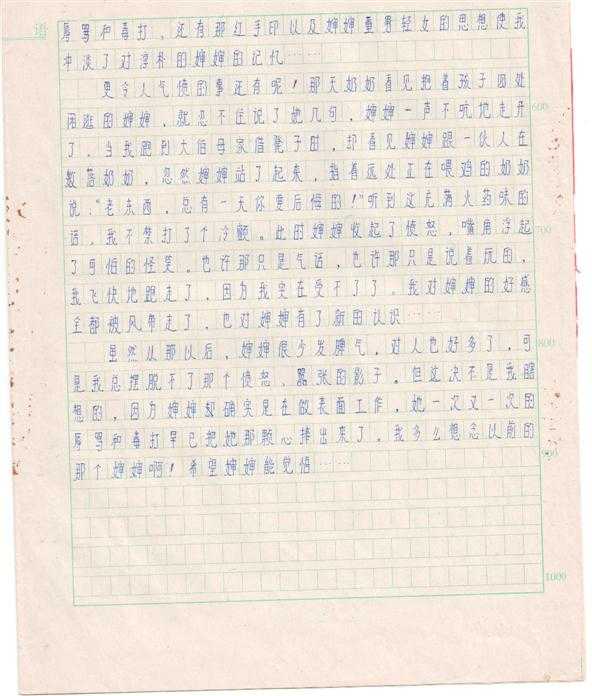 语
辱骂和毒打，还有那红手印以及婶婶重男轻女的思想使我
冲淡了对淳朴的婶婶的记忆……
更令人气愤的事还有呢！那天奶奶看见抱着孩子四处
闲逛的婶婶，就忍不住说了她几句，婶婶一声不吭地走开
600
了。当我跑到大伯母家借凳子时，却看见婶婶跟一伙人在
数落奶奶，忽然婶婶站了起来，指着远处正在喂鸡的奶奶
说：“老东西，总有一天你要后悔的！”听到这充满火药味的
话，我不禁打了个冷颤。此时婶婶收起了愤怒，嘴角浮起
700
了可怕的怪笑。也许那只是气话，也许那只是说着玩的，
我飞快地跑走了，因为我实在受不了了。我对婶婶的好感
全都被风带走了，也对婶婶有了新的认识……
虽然从那以后，婶婶很少发脾气，对人也好多了，可
800
是我总摆脱不了那个愤怒、嚣张的影子。但这决不是我瞎
想的，因为婶婶却确实是在做表面工作，她一次又一次的
辱骂和毒打早已把她那颗心捧出来了。我多么想念以前的
900
那个婶婶啊！希望婶婶能觉悟……
1000